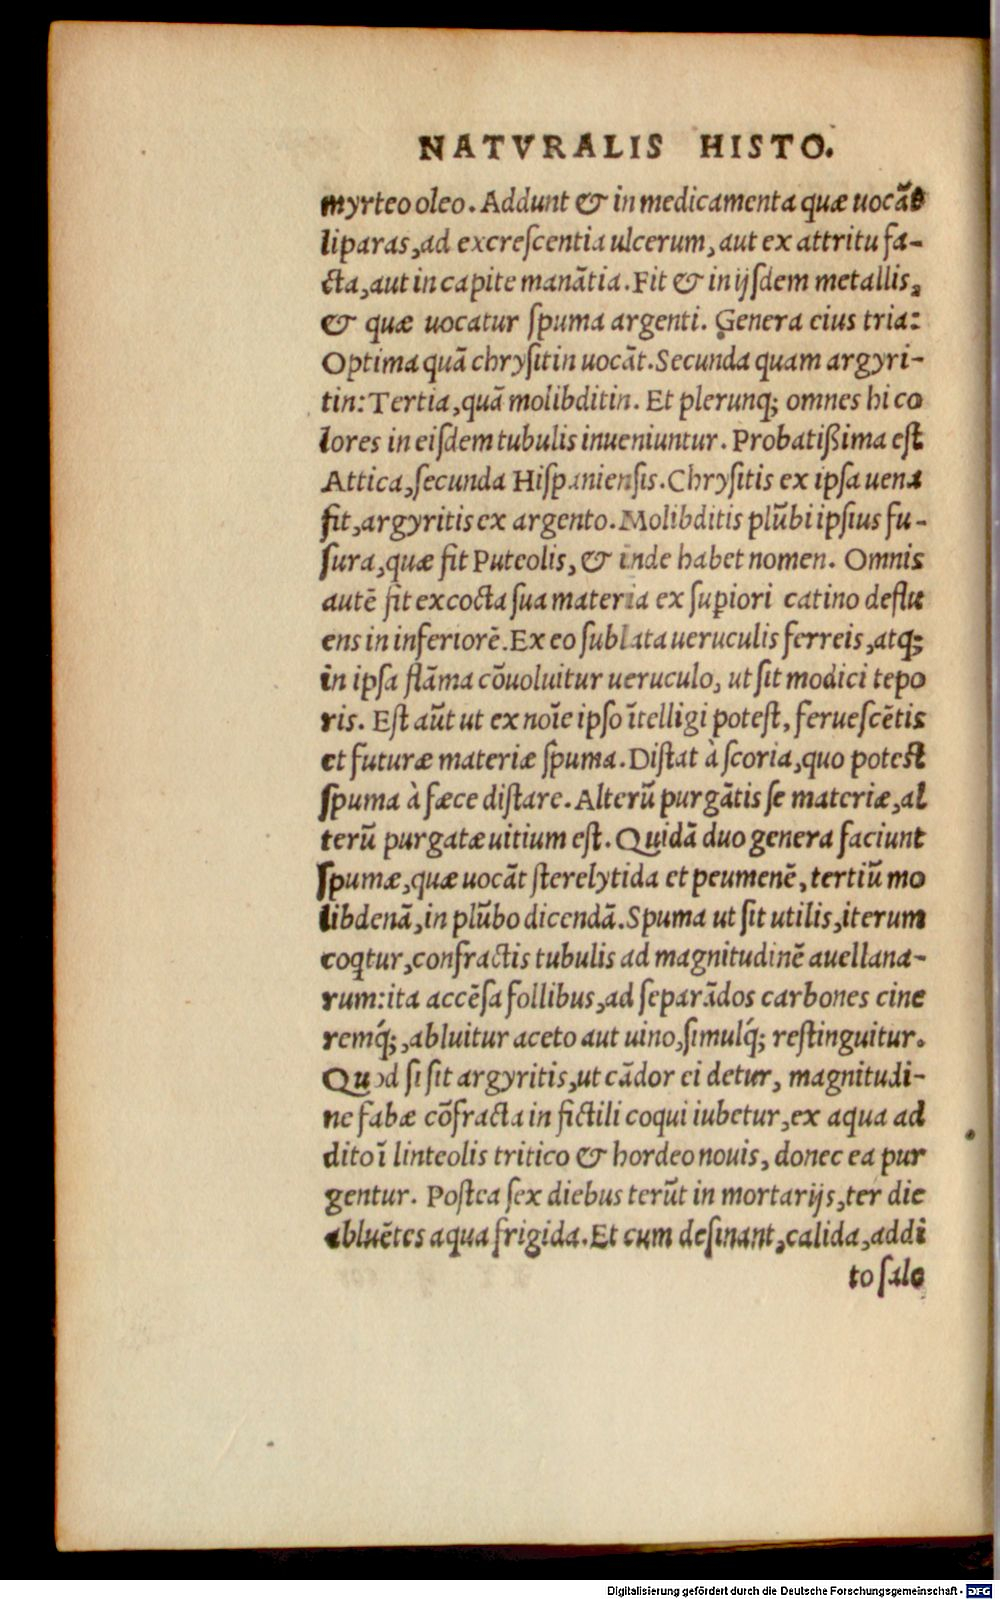 NATVRALIS HISTO.
myrteo oleo. Addunt & in medicamenta quæ uocãt
liparas, ad excreſcentia ulcerum, aut ex attritu fa-
cta, aut in capite manãtia. Fit & in ijſdem metallis,
& quæ uocatur ſpuma argenti. Genera eius tria:
Optima quã chryſitin uocãt. Secunda quam argyri-
tin: Tertia, quã molibditin. Et plerunq; omnes hi co
lores in eiſdem tubulis inueniuntur. Probatißima eſt
Attica, ſecunda Hiſpanienſis. Chryſitis ex ipſa uena
fit, argyritis ex argento. Molibditis plũbi ipſius fu-
ſura, quæ fit Puteolis, & inde habet nomen. Omnis
autẽ fit excocta ſua materia ex ſuꝑiori catino deflu
ens in inferiorẽ. Ex eo ſublata ueruculis ferreis, atq;
in ipſa flãma cõuoluitur ueruculo, ut ſit modici tepo
ris. Eſt aũt ut ex noĩe ipſo ĩtelligi poteſt, ferueſcẽtis
et futuræ materiæ ſpuma. Diſtat à ſcoria, quo poteſt
ſpuma à fæce diſtare. Alterũ purgãtis ſe materiæ, al
terũ purgatæ uitium eſt. Quidã duo genera faciunt
ſpumæ, quæ uocãt ſterelytida et peumenẽ, tertiũ mo
libdenã, in plũbo dicendã. Spuma ut ſit utilis, iterum
coqtur, confractis tubulis ad magnitudinẽ auellana-
rum: ita accẽſa follibus, ad ſeparãdos carbones cine
remq́;, abluitur aceto aut uino, ſimulq́; reſtinguitur.
Quod ſi ſit argyritis, ut cãdor ei detur, magnitudi-
ne fabæ cõfracta in fictili coqui iubetur, ex aqua ad
dito ĩ linteolis tritico & hordeo nouis, donec ea pur
gentur. Poſtea ſex diebus terũt in mortarijs, ter die
abluẽtes aqua frigida. Et cum deſinant, calida, addi
to ſale
Digitalisierung gefördert durch die Deutsche Forschungsgemeinschaft - DFG